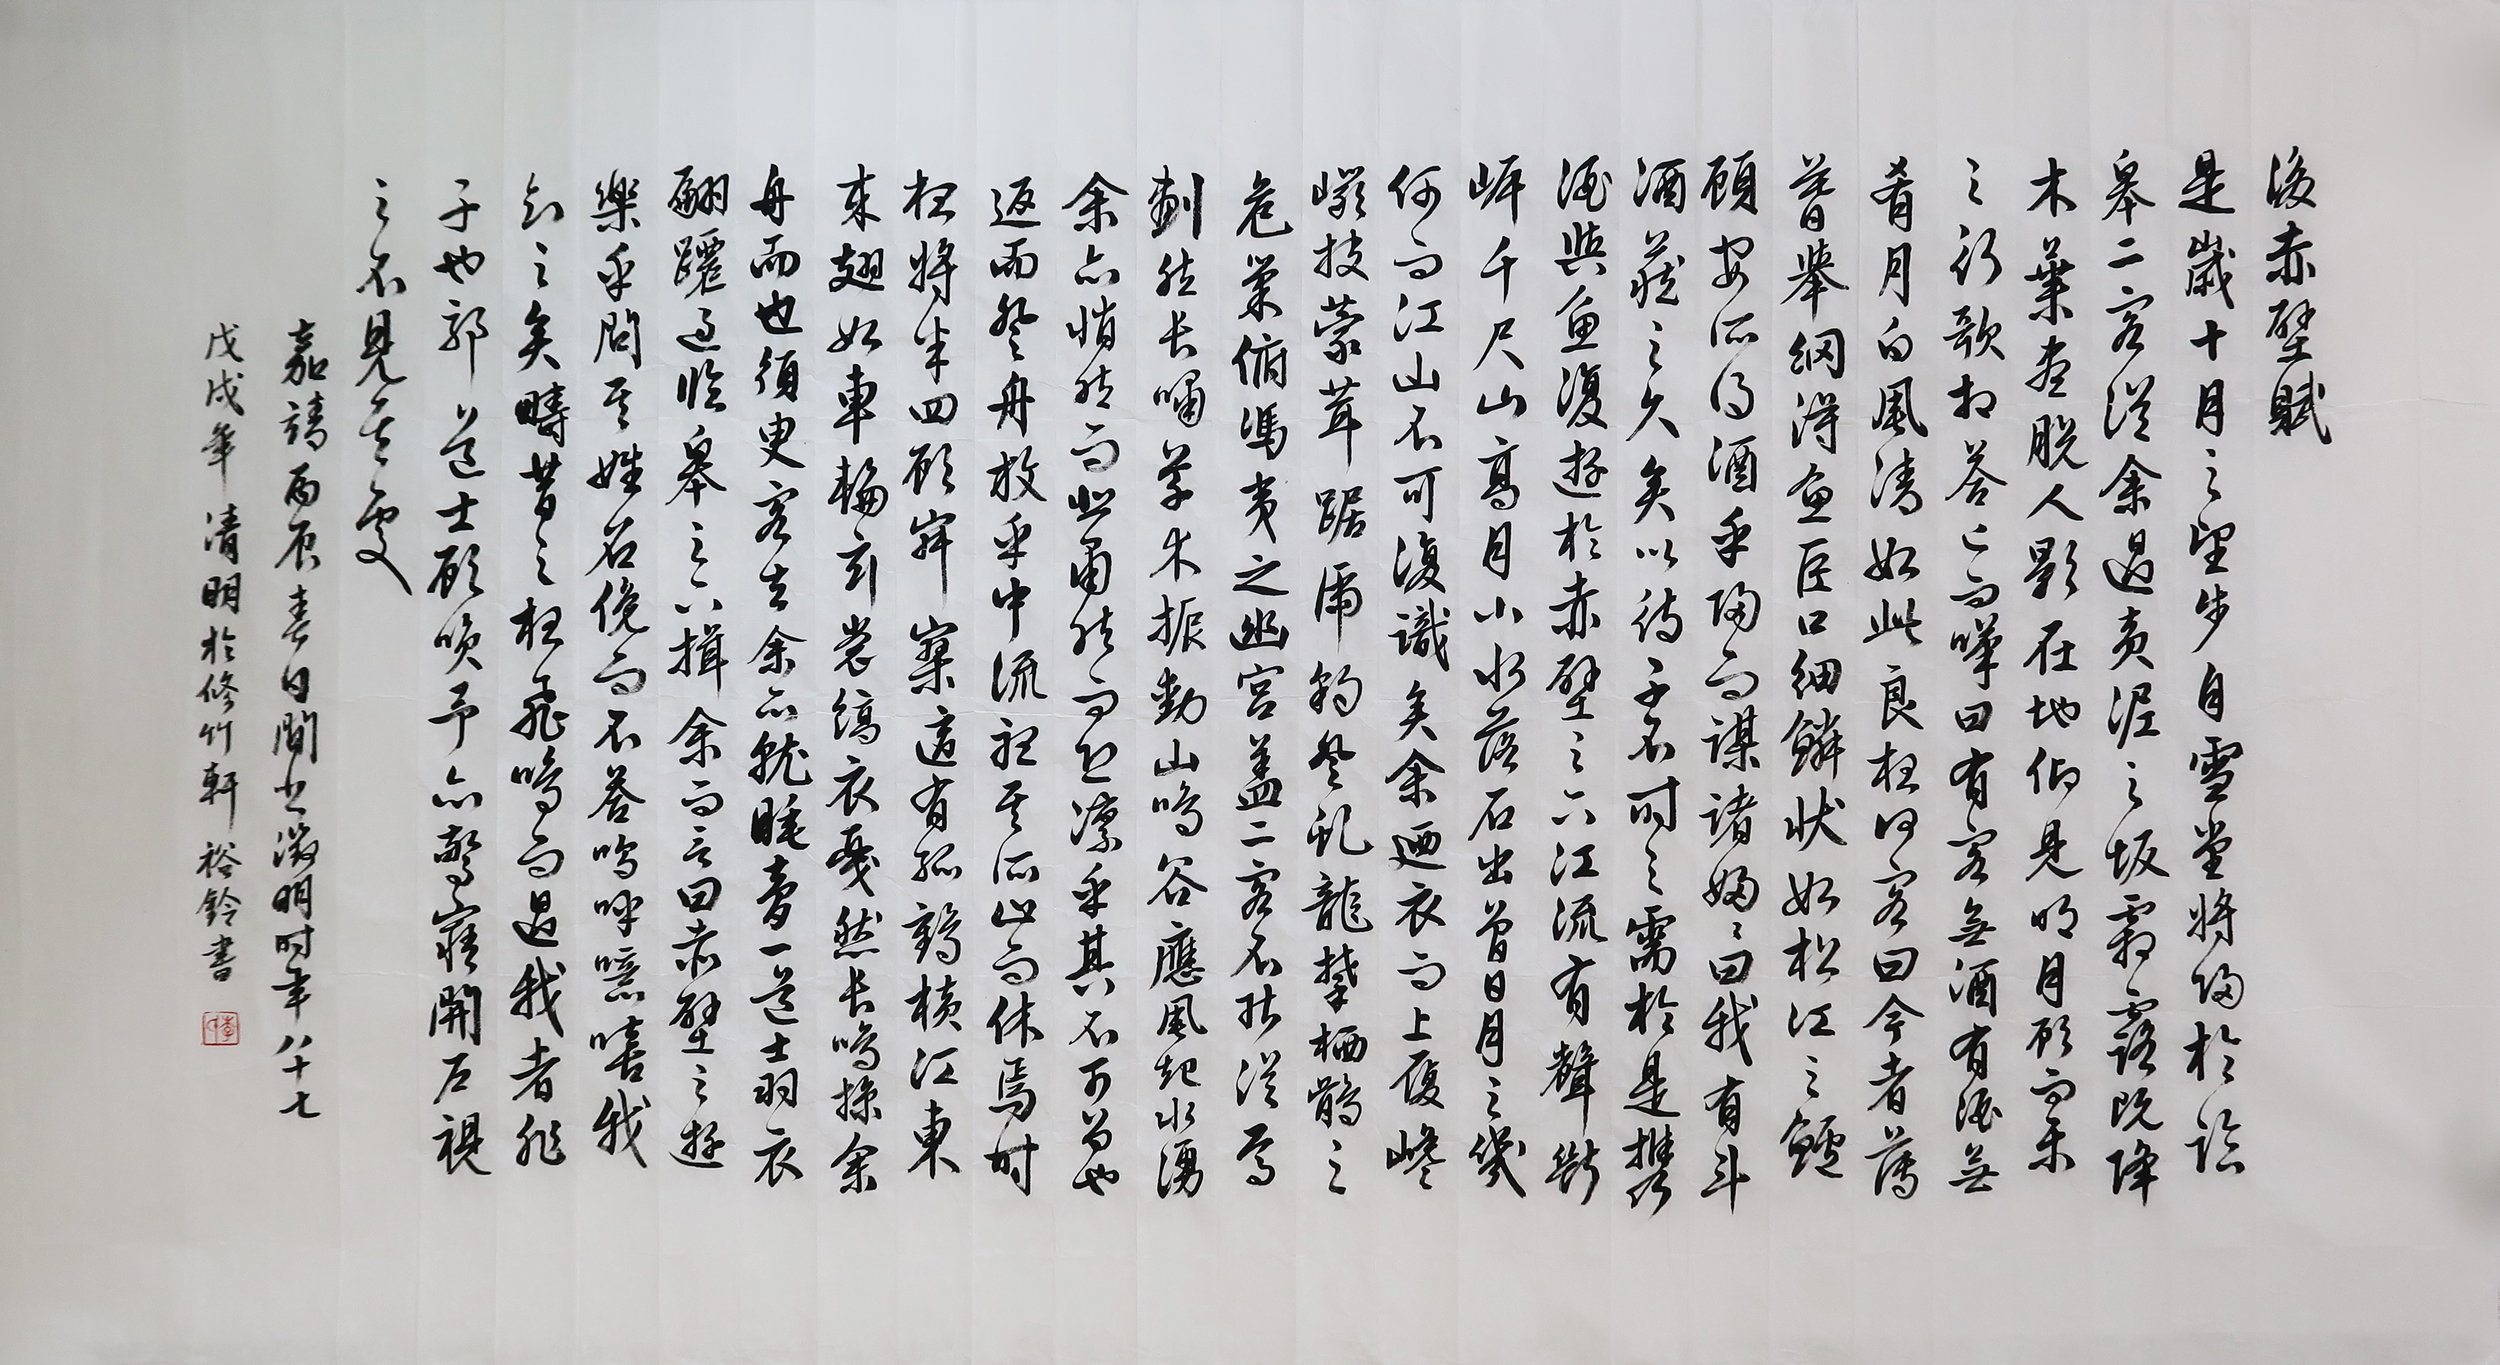 後赤壁賦
是歲十月之望步自雪堂將歸於臨
皋二客從余過黃泥之坂霜露既降
木葉盡脫人影在地仰見明月顧而樂
之行歌相答已而嘆曰有客無酒有酒無
肴月白風清如此良夜何客曰今者薄
暮舉網得魚巨口細鱗狀如松江之鱸
顧安所得酒乎歸而謀諸婦婦曰我有斗
酒藏之久矣以待子不時之需於是攜
酒與魚復遊於赤壁之下江流有聲斷
岸千尺山高月小水落石出曾日月之幾
何而江山不可復識矣余迺衣而上履巉
巖披蒙茸踞虎豹登虬龍攀栖鶻之
危巢俯馮夷之幽宮蓋二客不能從焉
劃然長嘯草木振動山鳴谷應風起水湧
余亦悄然而悲肅然而恐凜乎其不可留也
返而登舟放乎中流聽其所止而休焉時
夜將半四顧寂寥適有孤鶴橫江東
來翅如車輪玄裳縞衣戛然長鳴掠余
舟而也須臾客去余亦就睡夢一道士羽衣
翩躚過臨皋之下揖余而言曰赤壁之遊
樂乎問其姓名俛而不答嗚呼噫嘻我
知之矣疇昔之夜飛鳴而過我者非
子也邪道士顧笑予亦驚寤開戶視
之不見其處
嘉靖丙辰春日閒書徵明時年八十七
戊戌年清明於修竹軒裕鈴書